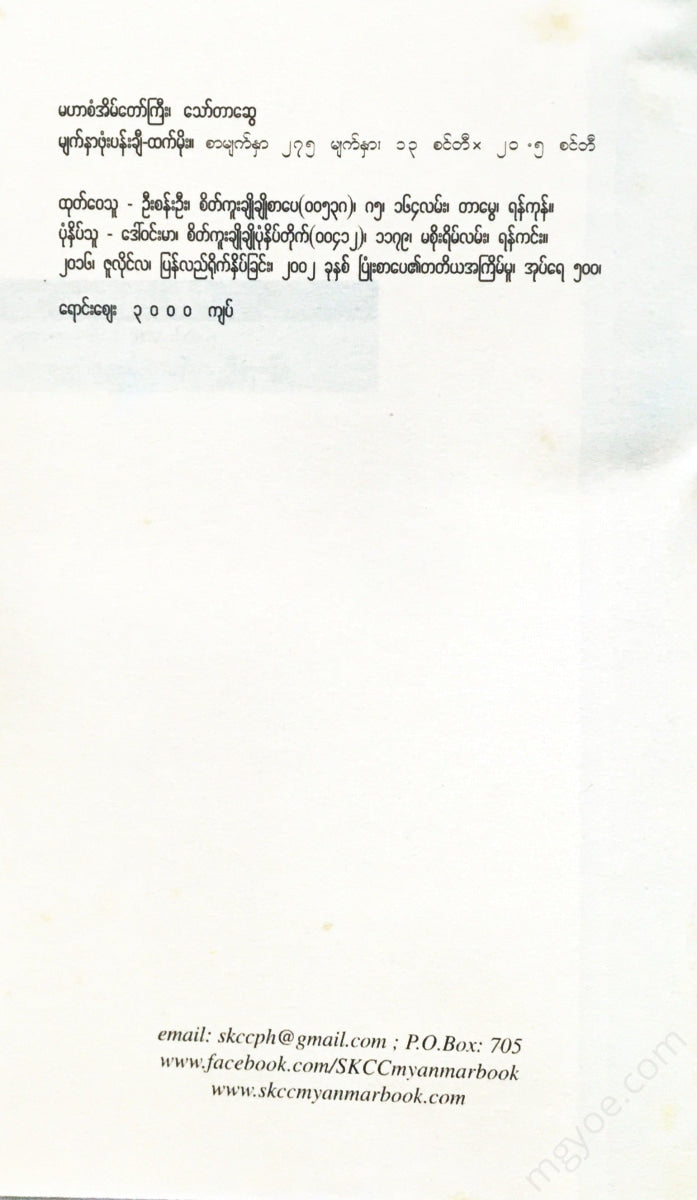 မဟာစံအိမ်တော်ကြီး၊ သော်တာဆွေ
မျက်နှာဖုံးပန်းချီ-ထက်မိုး။ စာမျက်နှာ ၂၇၅ မျက်နှာ၊ ၁၃ စင်တီ× ၂၀.၅ စင်တီ
ထုတ်ဝေသူ - ဦးစန်းဦး၊ စိတ်ကူးချိုချိုစာပေ(၀၀၅၃၈)၊ ဂ၅၊ ၁၆၄လမ်း၊ တာမွေ၊ ရန်ကုန်။
ပုံနှိပ်သူ - ဒေါ်ဝင်းမာ၊ စိတ်ကူးချိုချိုပုံနှိပ်တိုက်(၀၀၄၁၂)၊ ၁၁၇၉၊ မစိုးရိမ်လမ်း၊ ရန်ကင်း။
၂၀၁၆၊ ဇူလိုင်လ၊ ပြန်လည်ရိုက်နှိပ်ခြင်း၊ ၂၀၀၂ ခုနှစ် ပြုံးစာပေ၏တတိယအကြိမ်မူ၊ အုပ်ရေ ၅၀၀၊
ရောင်းဈေး ၃၀၀၀ ကျပ်
email: skccph@gmail.com ; P.O.Box: 705
www.facebook.com/SKCCmyanmarbook
www.skccmyanmarbook.com
mgyoe.com